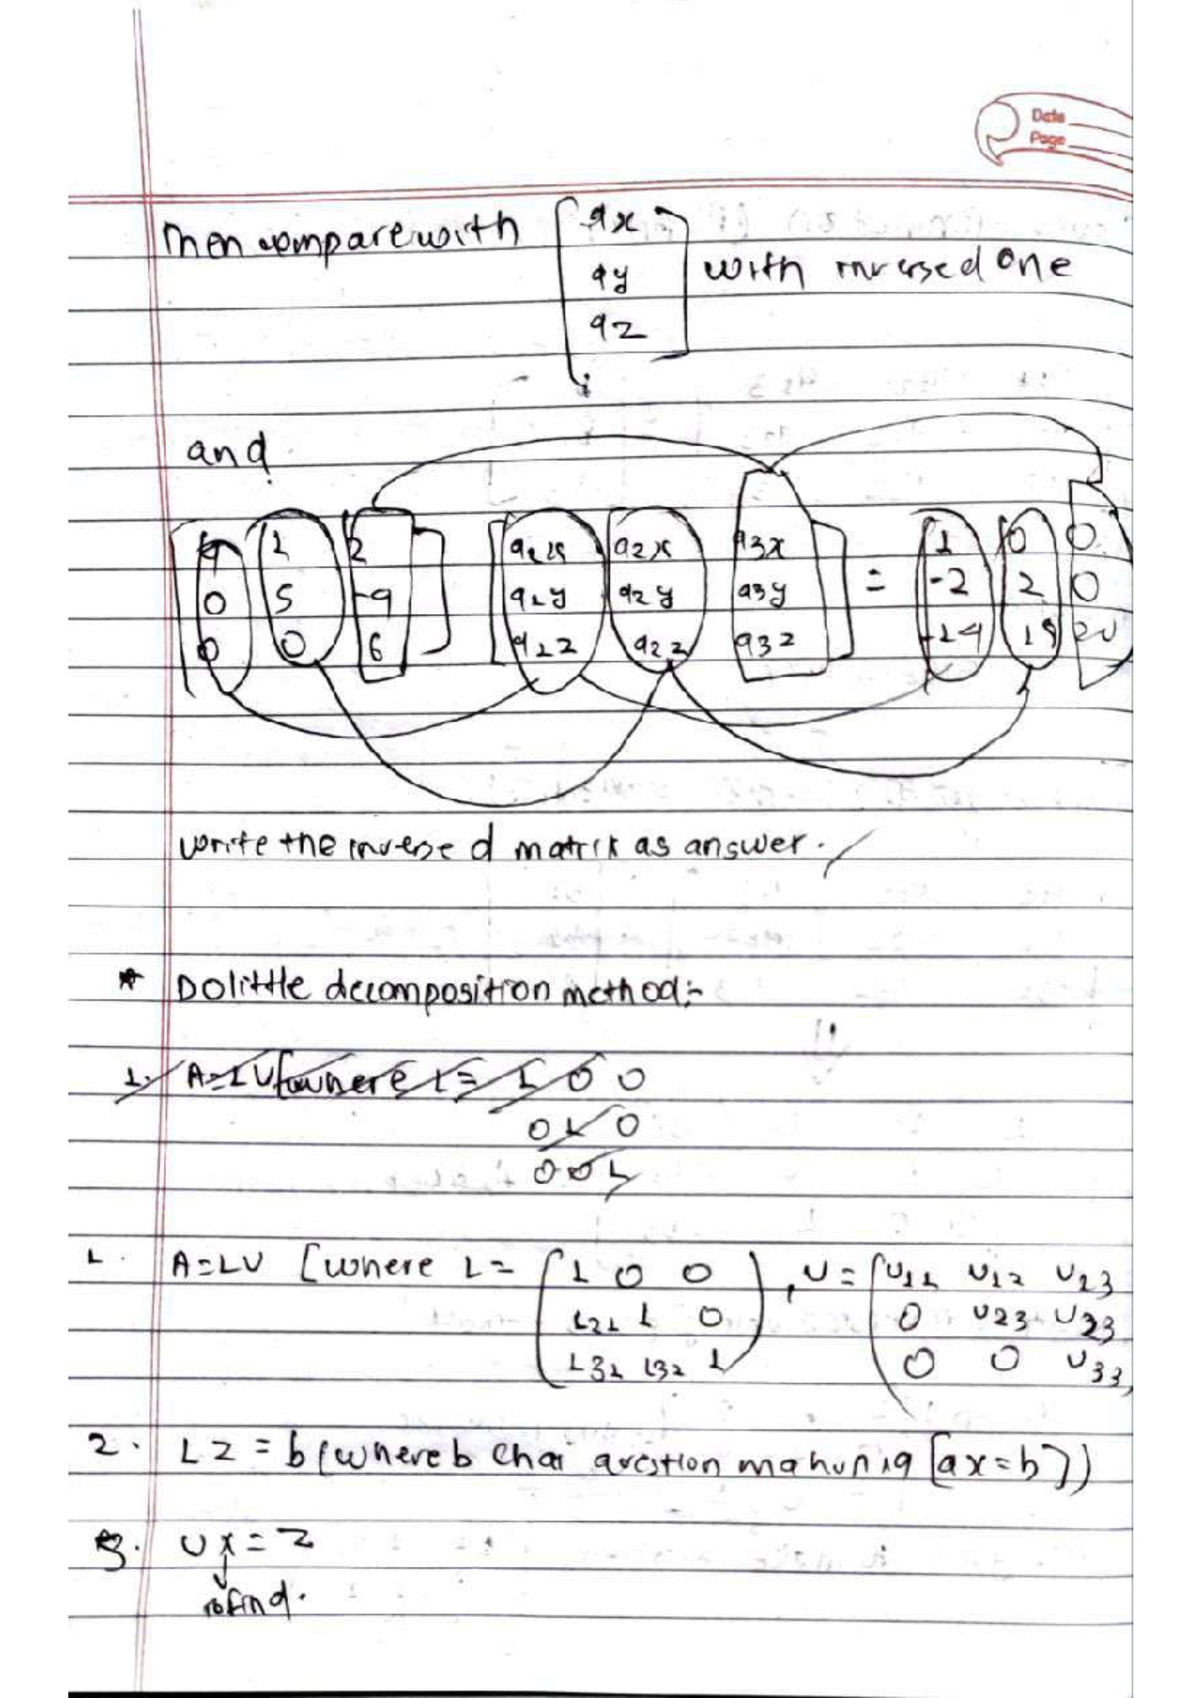 Date
Page
Then compare with [ax
ay
az] with inversed one
and
[4 1 2] [a1x a2x a3x] = [1 0 0]
[0 5 -9] [a1y a2y a3y] [-2 2 0]
[0 0 6] [a1z a2z a3z] [-14 18 20]
write the inversed matrix as answer.
* Dolittle decomposition method:-
1. A=LU [where L= 1 0 0
0 1 0
0 0 1
1. A=LU [where L= (1 0 0), U= (U11 U12 U13
L21 1 0 0 U23 U23
L31 L32 1 0 0 U33
2. LZ = b (where b chai question ma hunxa [ax=b])
3. Ux = Z
to find.